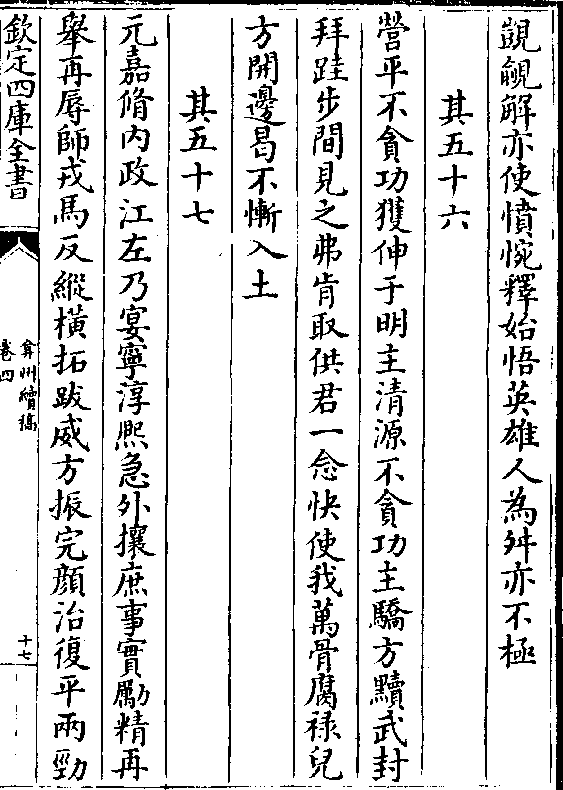 覬覦解亦使憤惋釋始悟英雄人為舛亦不極
其五十六
營平不貪功獲伸于明主清源不貪功主驕方黷武封
拜跬步間見之弗肯取供君一念快使我萬骨腐祿兒
方開邊曷不慚入土
其五十七
元嘉脩内政江左乃宴寧淳熈急外攘庶事實勵精再
舉再辱師戎馬反縱橫拓跋威方振完顔治復平兩勁
欽定四庫全書
弇州續稿
卷四
十七